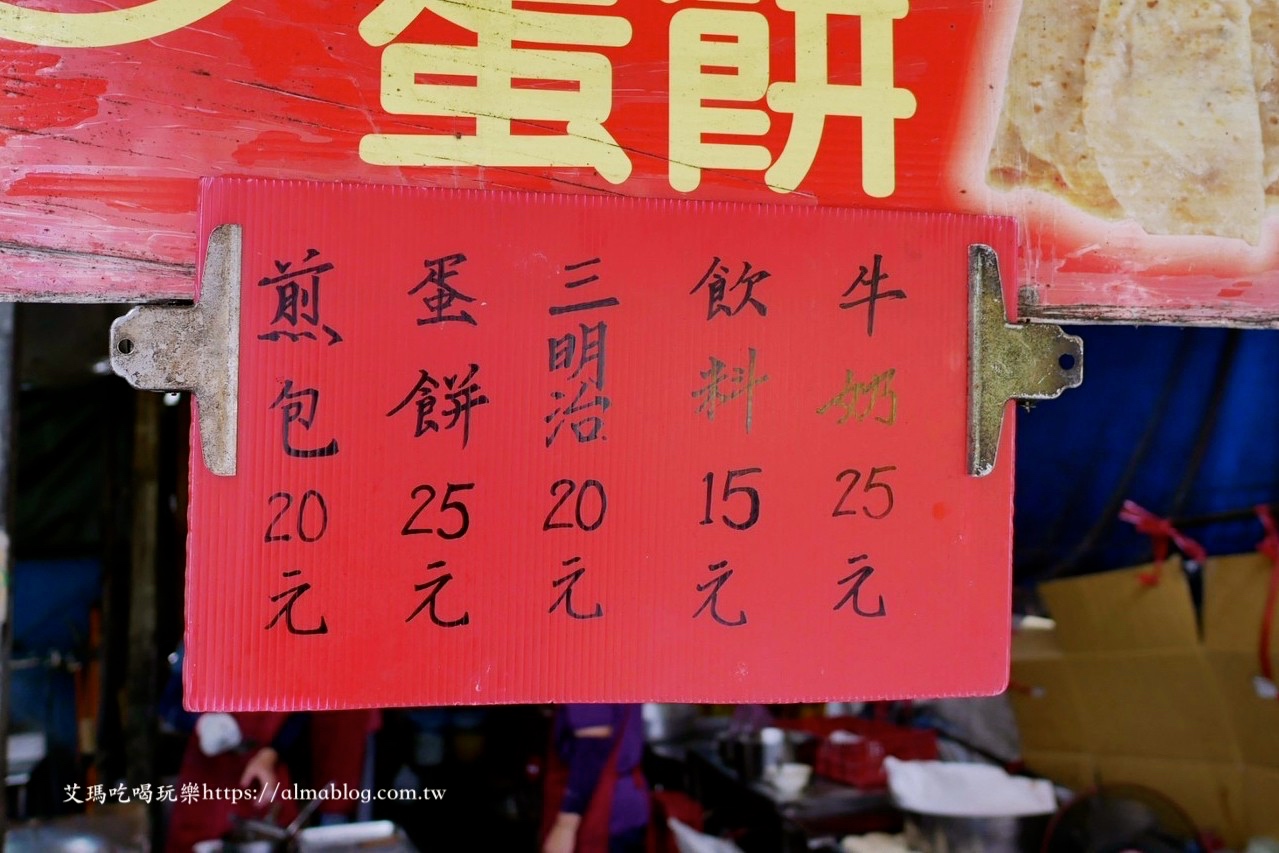 蛋餅
牛奶25元
飲料15元
三明治20元
蛋餅25元
煎包20元
艾瑪吃喝玩樂https://almablog.com.tw